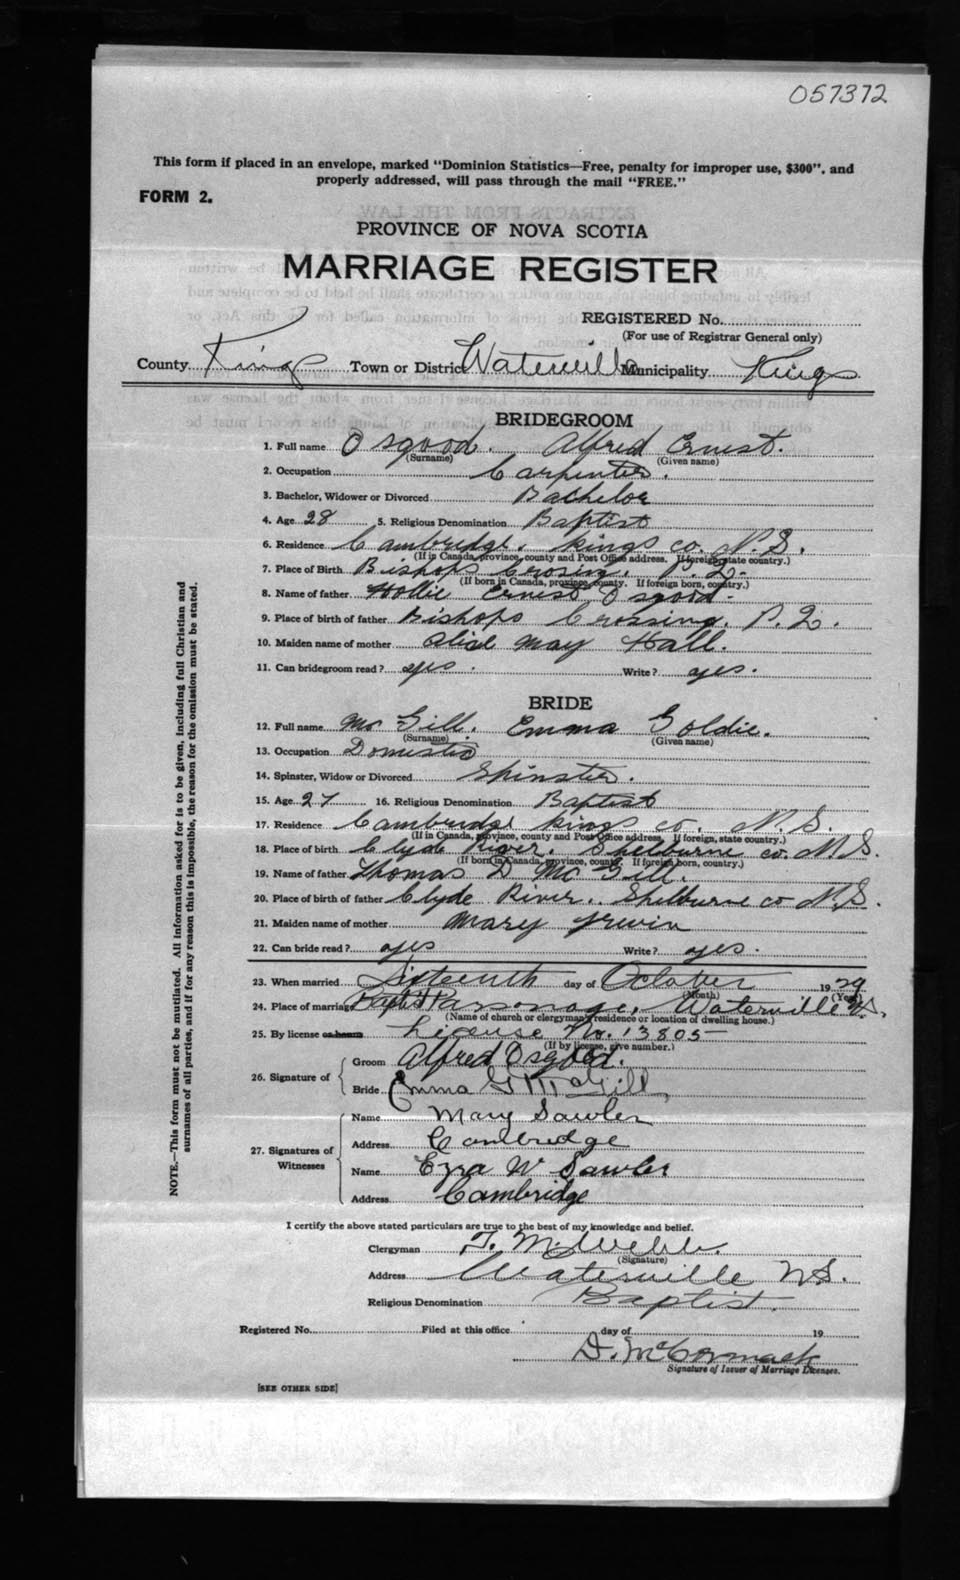 057372
This form if placed in an envelope, marked "Dominion Statistics—Free, penalty for improper use, $300", and
properly addressed, will pass through the mail "FREE."
FORM 2.
PROVINCE OF NOVA SCOTIA
MARRIAGE REGISTER
REGISTERED No.
(For use of Registrar General only)
County Kings Town or District Waterville Municipality Kings
BRIDEGROOM
1. Full name Osgood. Alfred Ernest.
(Surname) (Given name)
2. Occupation Carpenter.
3. Bachelor, Widower or Divorced Bachelor
4. Age 28 5. Religious Denomination Baptist
6. Residence Cambridge. Kings co. N.S.
(If in Canada, province, county and Post Office address. If foreign, state country.)
7. Place of Birth Bishops Crosing. P.Q.
(If born in Canada, province, county. If foreign born, country.)
8. Name of father Hollie Ernest Osgood.
9. Place of birth of father Bishops Crossing. P.Q.
10. Maiden name of mother Alice May Hall.
11. Can bridegroom read? yes. Write? yes.
BRIDE
12. Full name McGill. Emma Goldie.
(Surname) (Given name)
13. Occupation Domestic
14. Spinster, Widow or Divorced Spinster.
15. Age 27 16. Religious Denomination Baptist
17. Residence Cambridge Kings co. N.S.
(If in Canada, province, county and Post Office address. If foreign, state country.)
18. Place of birth Clyde River. Shelburne co N.S.
(If born in Canada, province, county. If foreign born, country.)
19. Name of father Thomas D McGill.
20. Place of birth of father Clyde River.. Shelburne co N.S.
21. Maiden name of mother Mary Irwin
22. Can bride read? yes Write? yes.
23. When married Sixteenth day of October 1929
(Month) (Year)
24. Place of marriage Baptist Parsonage, Waterville N.S.
(Name of church or clergyman's residence or location of dwelling house.)
25. By license or banns License No. 13805
(If by license, give number.)
26. Signature of Groom Alfred Osgood.
Bride Emma G McGill
27. Signatures of Witnesses
Name Mary Sawler
Address Cambridge
Name Ezra W Sawler
Address Cambridge
I certify the above stated particulars are true to the best of my knowledge and belief.
Clergyman T. M. Webb.
(Signature)
Address Waterville N.S.
Religious Denomination Baptist.
Registered No. Filed at this office day of 19
D. McCormack
Signature of Issuer of Marriage Licenses.
[SEE OTHER SIDE]
NOTE.—This form must not be mutilated. All information asked for is to be given, including full Christian and
surnames of all parties, and if for any reason this is impossible, the reason for the omission must be stated.